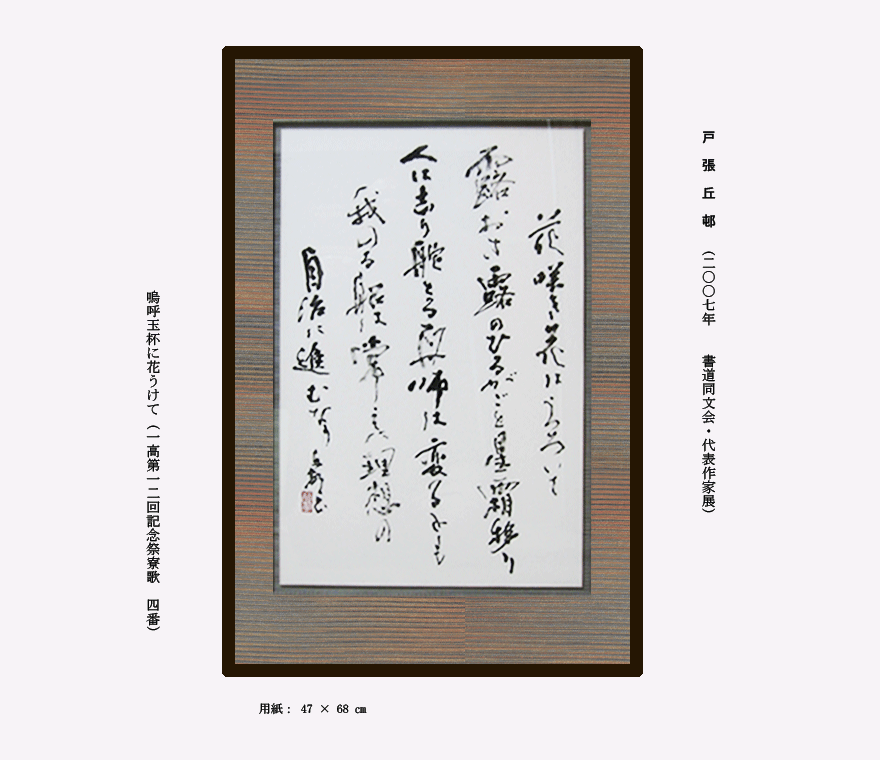 戸張丘邨（二〇〇七年　書道同文会・代表作家展）
花咲き花はうつろいて
露おき露のひるがごと星霜移り
人は去り舵とる舟師は変るとも
我のる船は常へに理想の
自治に進むなり
嗚呼玉杯に花うけて（一高第一二回記念祭寮歌　四番）
用紙： 47 × 68 ㎝